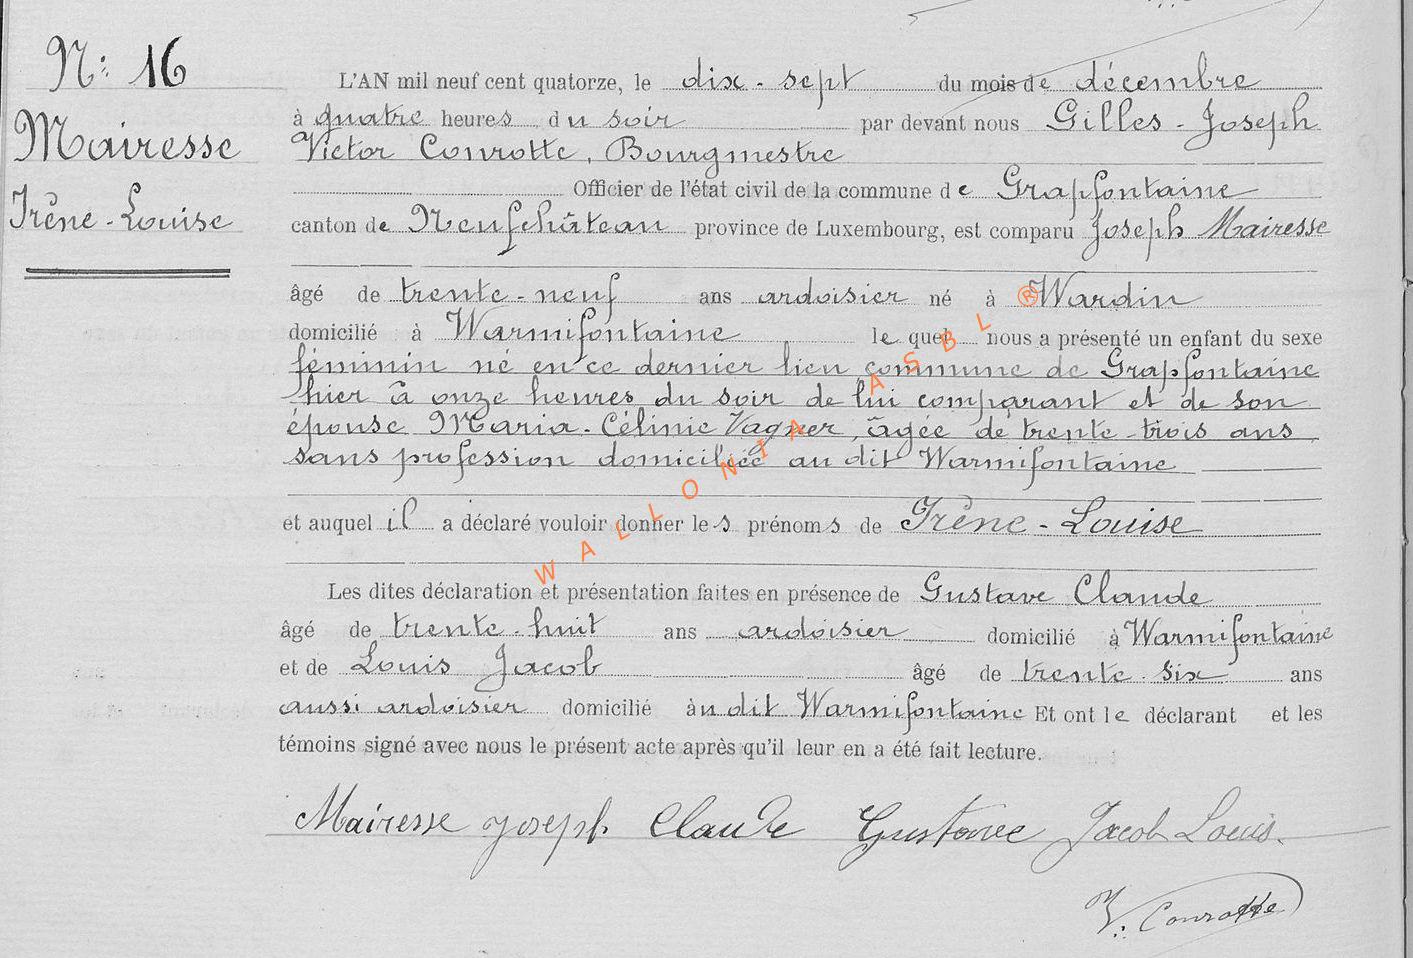 N: 16
Mairesse
Irène-Louise
L'AN mil neuf cent quatorze, le dix-sept du mois de décembre
à quatre heures du soir par devant nous Gilles-Joseph
Victor Conrotte, Bourgmestre
Officier de l'état civil de la commune de Grapfontaine
canton de Neufchâteau province de Luxembourg, est comparu Joseph Mairesse
âgé de trente-neuf ans ardoisier né à Wardin
domicilié à Warmifontaine lequel nous a présenté un enfant du sexe
féminin né en ce dernier lieu commune de Grapfontaine
hier à onze heures du soir de lui comparant et de son
épouse Maria-Célinie Vagner, âgée de trente-trois ans,
sans profession domiciliée au dit Warmifontaine
et auquel il a déclaré vouloir donner les prénoms de Irène-Louise
Les dites déclaration et présentation faites en présence de Gustave Claude
âgé de trente-huit ans ardoisier domicilié à Warmifontaine
et de Louis Jacob âgé de trente-six ans
aussi ardoisier domicilié au dit Warmifontaine Et ont le déclarant et les
témoins signé avec nous le présent acte après qu'il leur en a été fait lecture.
Mairesse Joseph Claude Gustave Jacob Louis.
V. Conrotte
WALLONIA ASBL ®